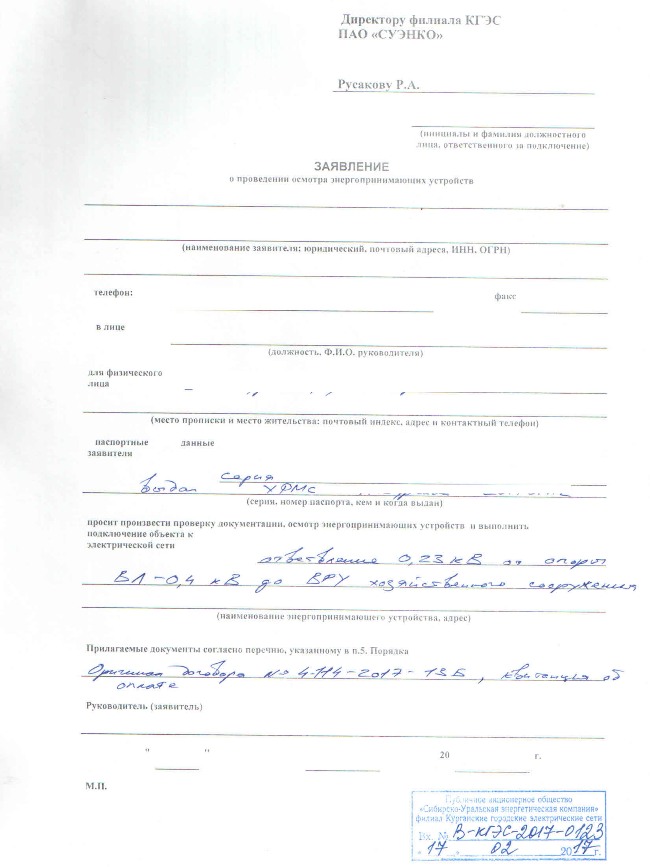 Директору филиала КГЭС
ПАО «СУЭНКО»
Русакову Р.А.
(инициалы и фамилия должностного
лица, ответственного за подключение)
ЗАЯВЛЕНИЕ
о проведении осмотра энергопринимающих устройств
(наименование заявителя; юридический, почтовый адреса, ИНН, ОГРН)
телефон: факс
в лице
(должность, Ф.И.О. руководителя)
для физического
лица
(место прописки и место жительства: почтовый индекс, адрес и контактный телефон)
паспортные данные
заявителя
серия
Выдан УФМС
(серия, номер паспорта, кем и когда выдан)
просит произвести проверку документации, осмотр энергопринимающих устройств и выполнить
подключение объекта к
электрической сети
ответвление 0,23 кВ от опоры
ВЛ-0,4 кВ до ВРУ хозяйственного сооружения
(наименование энергопринимающего устройства, адрес)
Прилагаемые документы согласно перечню, указанному в п.5. Порядка
Оригинал договора № 4-114-2017-13Б, квитанция об
оплате
Руководитель (заявитель)
" " 20 г.
М.П.
Публичное акционерное общество
«Сибирско-Уральская энергетическая компания»
филиал Курганские городские электрические сети
Вх. № В-КГЭС-2017-0123
"17" 02 2017г.